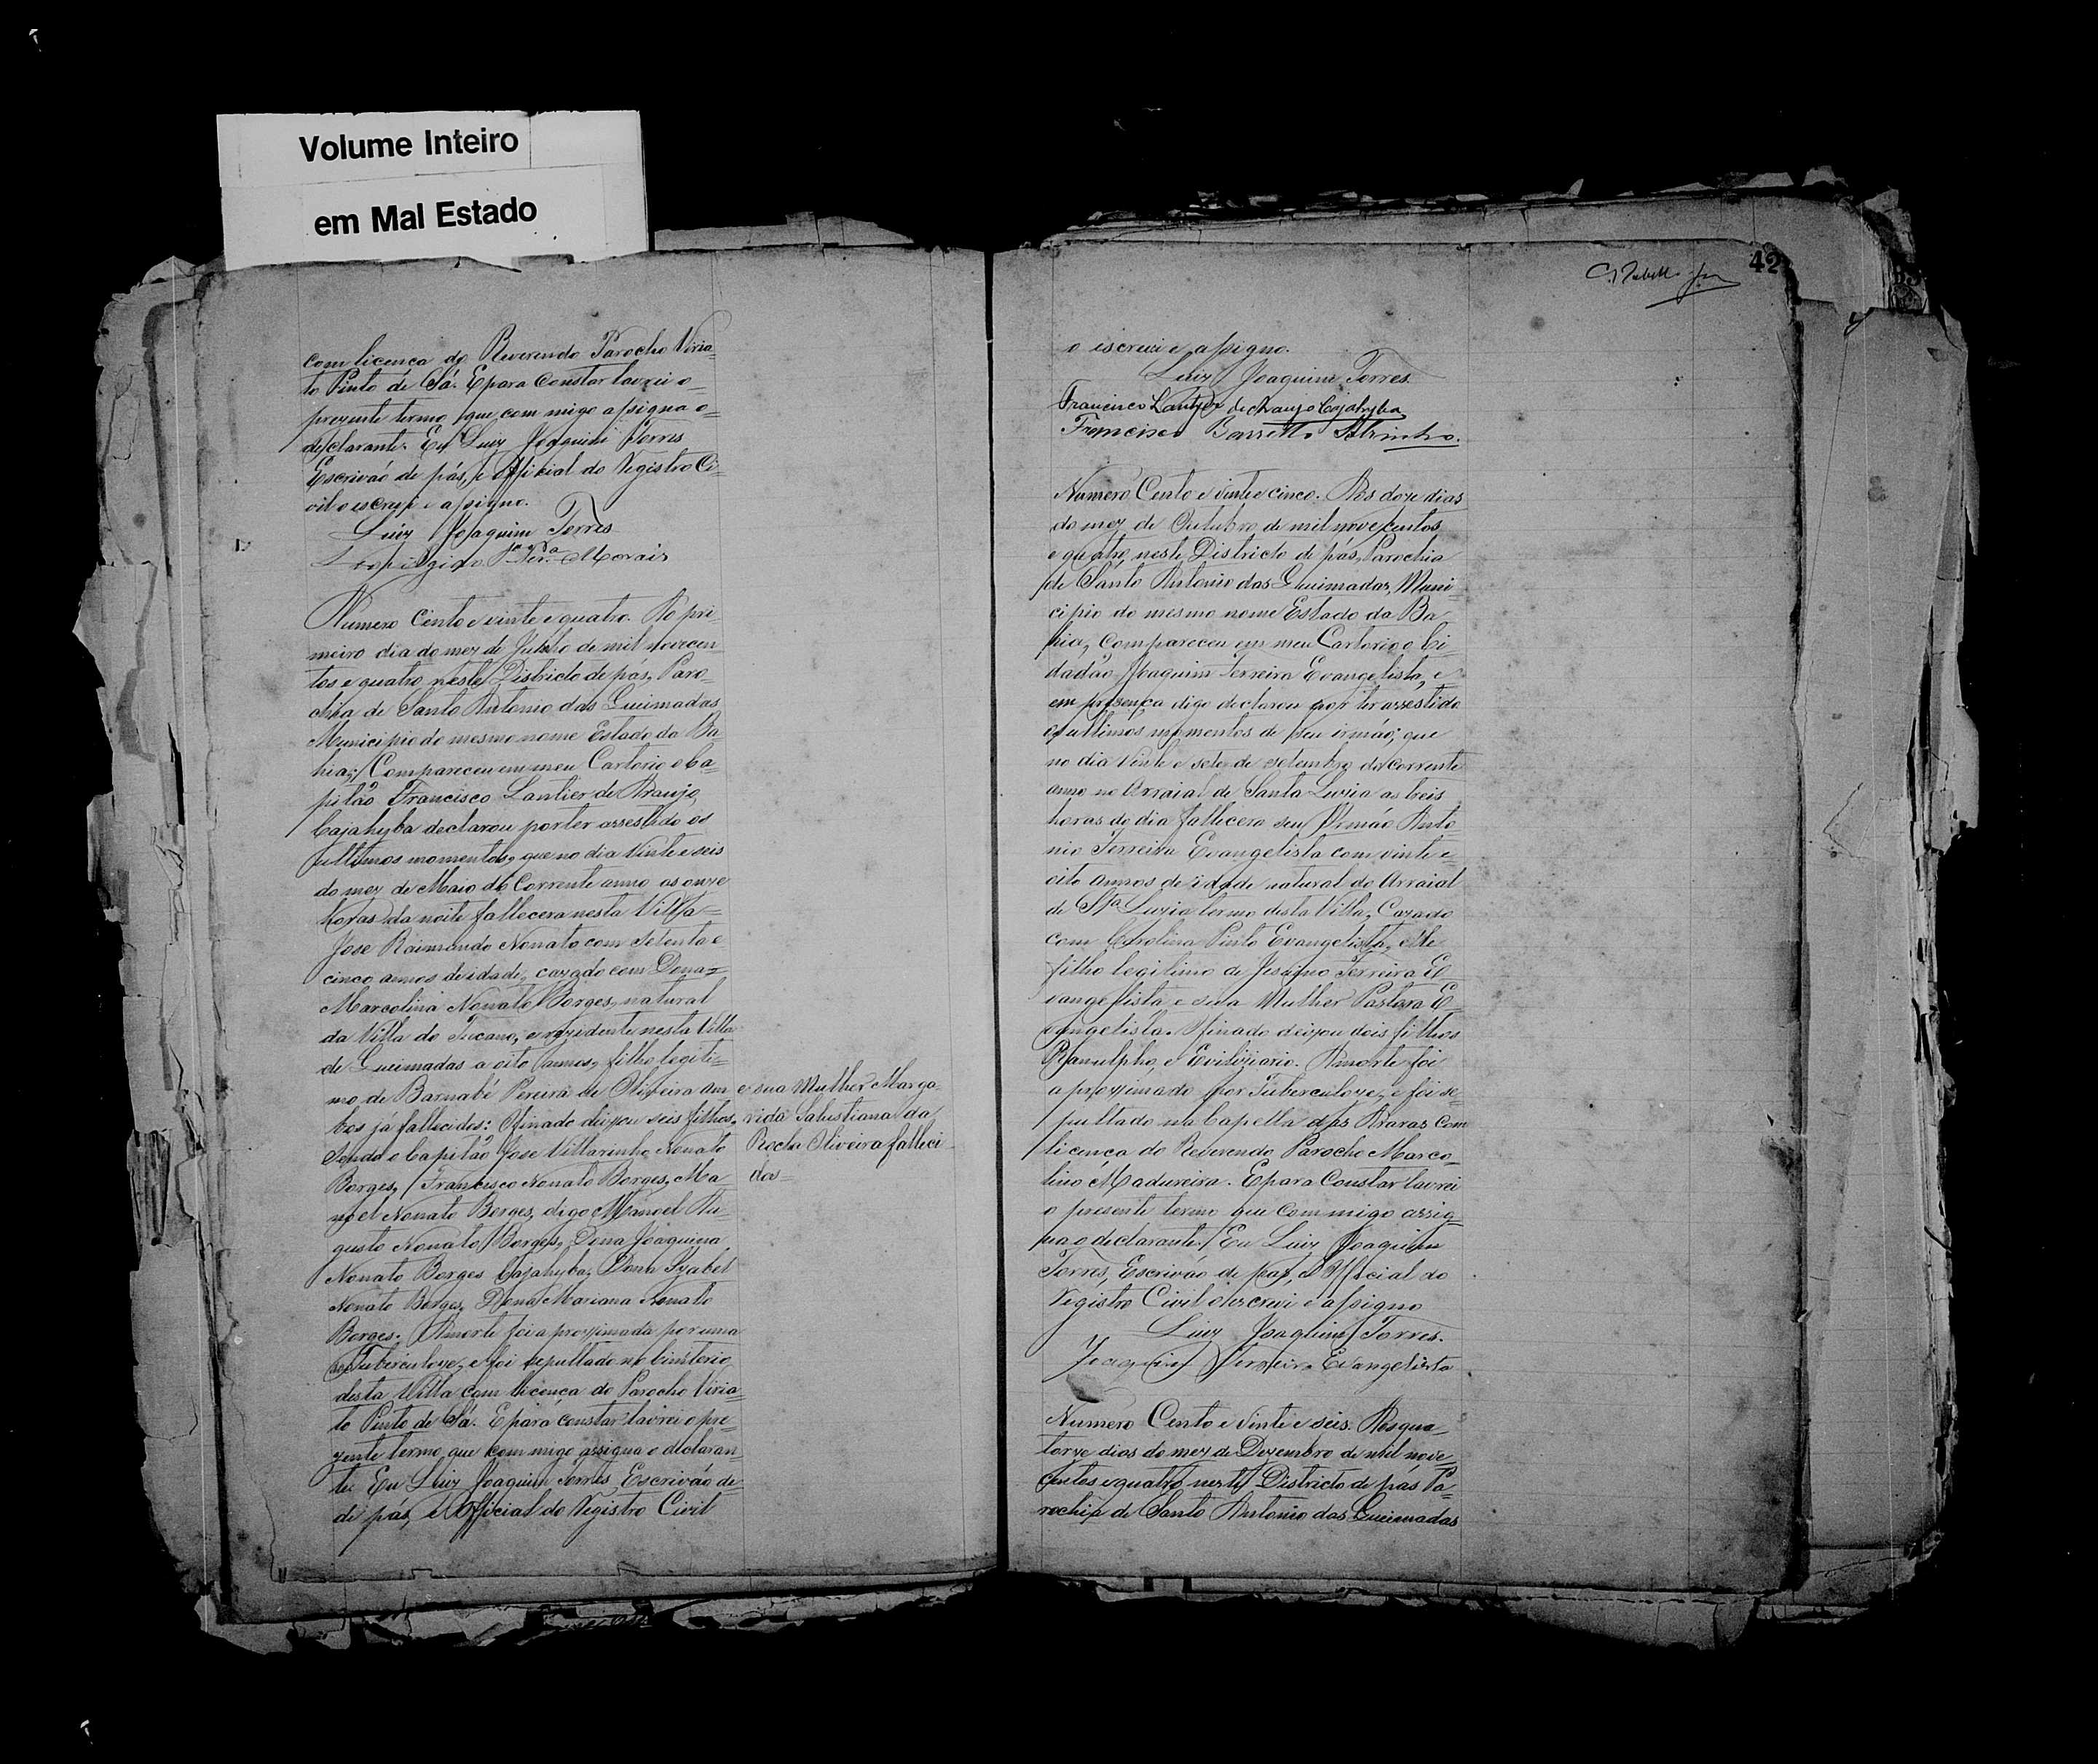 Volume Inteiro
em Mal Estado
com licença do Reverendo Parocho Viria-
to Pinto de Sá. E para constar lavrei o
prezente termo que com migo assigna o
declarante. Eu Luiz Joaquim Torres
Escrivaó de pás, e Official do Registro Ci-
vil o escrevi e assigno.
Luiz Joaquim Torres
Morais
Numero Cento e vinte e quatro. Ao pri-
meiro dia do mez de Junho de mil novecen-
tos e quatro neste Districto de pás, Paro-
chia de Santo Antonio das Queimadas
Municipio do mesmo nome Estado da Ba-
hia; Compareceu em meu Cartorio o Ca-
pitão Francisco Lantier de Araujo
Cajahyba declarou por ter assestido os
ultimos momentos, que no dia vinte e seis
do mez de Maio do Corrente anno as onze
horas da noite fallecera nesta Villa=
Jose Raimundo Nonato com setenta e
cinco annos de idade, cazado com Dona=
Marcolina Nonato Borges, natural
da Villa do Tucano, e rezidente nesta Villa
de Queimadas a oito annos, filho legiti-
mo de Barnabé Pereira de Oliveira am e sua Mulher Marga-
bos já fallecidos: O finado deixou seis filhos, rida Salustiana da
Sendo o Capitão Jose Villarinho Nonato Rocha Oliveira falleci-
Borges, Francisco Nonato Borges, Ma- dos=
noel Nonato Borges, digo Manoel Au-
gusto Nonato Borges, Dona Joaquina
Nonato Borges Cajahyba, Dona Izabel
Nonato Borges, Dona Mariana Nonato
Borges. A morte foi aproximada por uma
Tuberculoze, e foi sepultado no Cimiterio
desta Villa com licença do Parocho Viria-
to Pinto de Sá. E para constar lavrei o pre-
zente termo que com migo assigna o declaran-
te. Eu Luiz Joaquim Torres, Escrivão de
de pás, e Official do Registro Civil
42
o escrevi e assigno.
Luiz Joaquim Torres
Francisco Lantier de Araujo Cajahyba
Francisco Barretto Sobrinho.
Numero Cento e vinte e cinco. Aos doze dias
do mez de Outubro de mil novecentos
e quatro, neste Districto de pás, Parochia
de Santo Antonio das Queimadas, Muni-
cipio do mesmo nome Estado da Ba-
hia, Compareceu em meu Cartorio o Ci-
dadão Joaquim Ferreira Evangelista, e
em prezença digo declarou por ter assestido
os ultimos momentos de seu irmão; que
no dia vinte e sete de setembro do corrente
anno no Arraial de Santa Luzia as treis
horas do dia fallecera seu Irmão Anto-
nio Ferreira Evangelista com vinte e
oito annos de idade natural do Arraial
de Sta Luzia termo desta Villa, Cazado
com Carolina Pinto Evangelista, elle
filho legitimo de Jesuino Ferreira E-
vangelista e sua Mulher Pastora E-
vangelista. O finado deixou dois filhos
Ranulpho, e . A morte foi
aproximado por Tuberculoze, e foi se-
pultado na Capella das Araras com
licença do Reverendo Parocho Marco-
lino Madureira. E para Constar lavrei
o presente termo que com migo assig-
na o declarante. Eu Luiz Joaquim
Torres, Escrivão de paz, e Official do
Registro Civil o escrevi e assigno
Luiz Joaquim Torres.
Joaquim Ferreira Evangelista
Numero Cento e vinte e seis. Aos qua-
torze dias do mez de Dezembro de mil nove-
centos e quatro neste Districto de pás Pa-
rochia de Santo Antonio das Queimadas